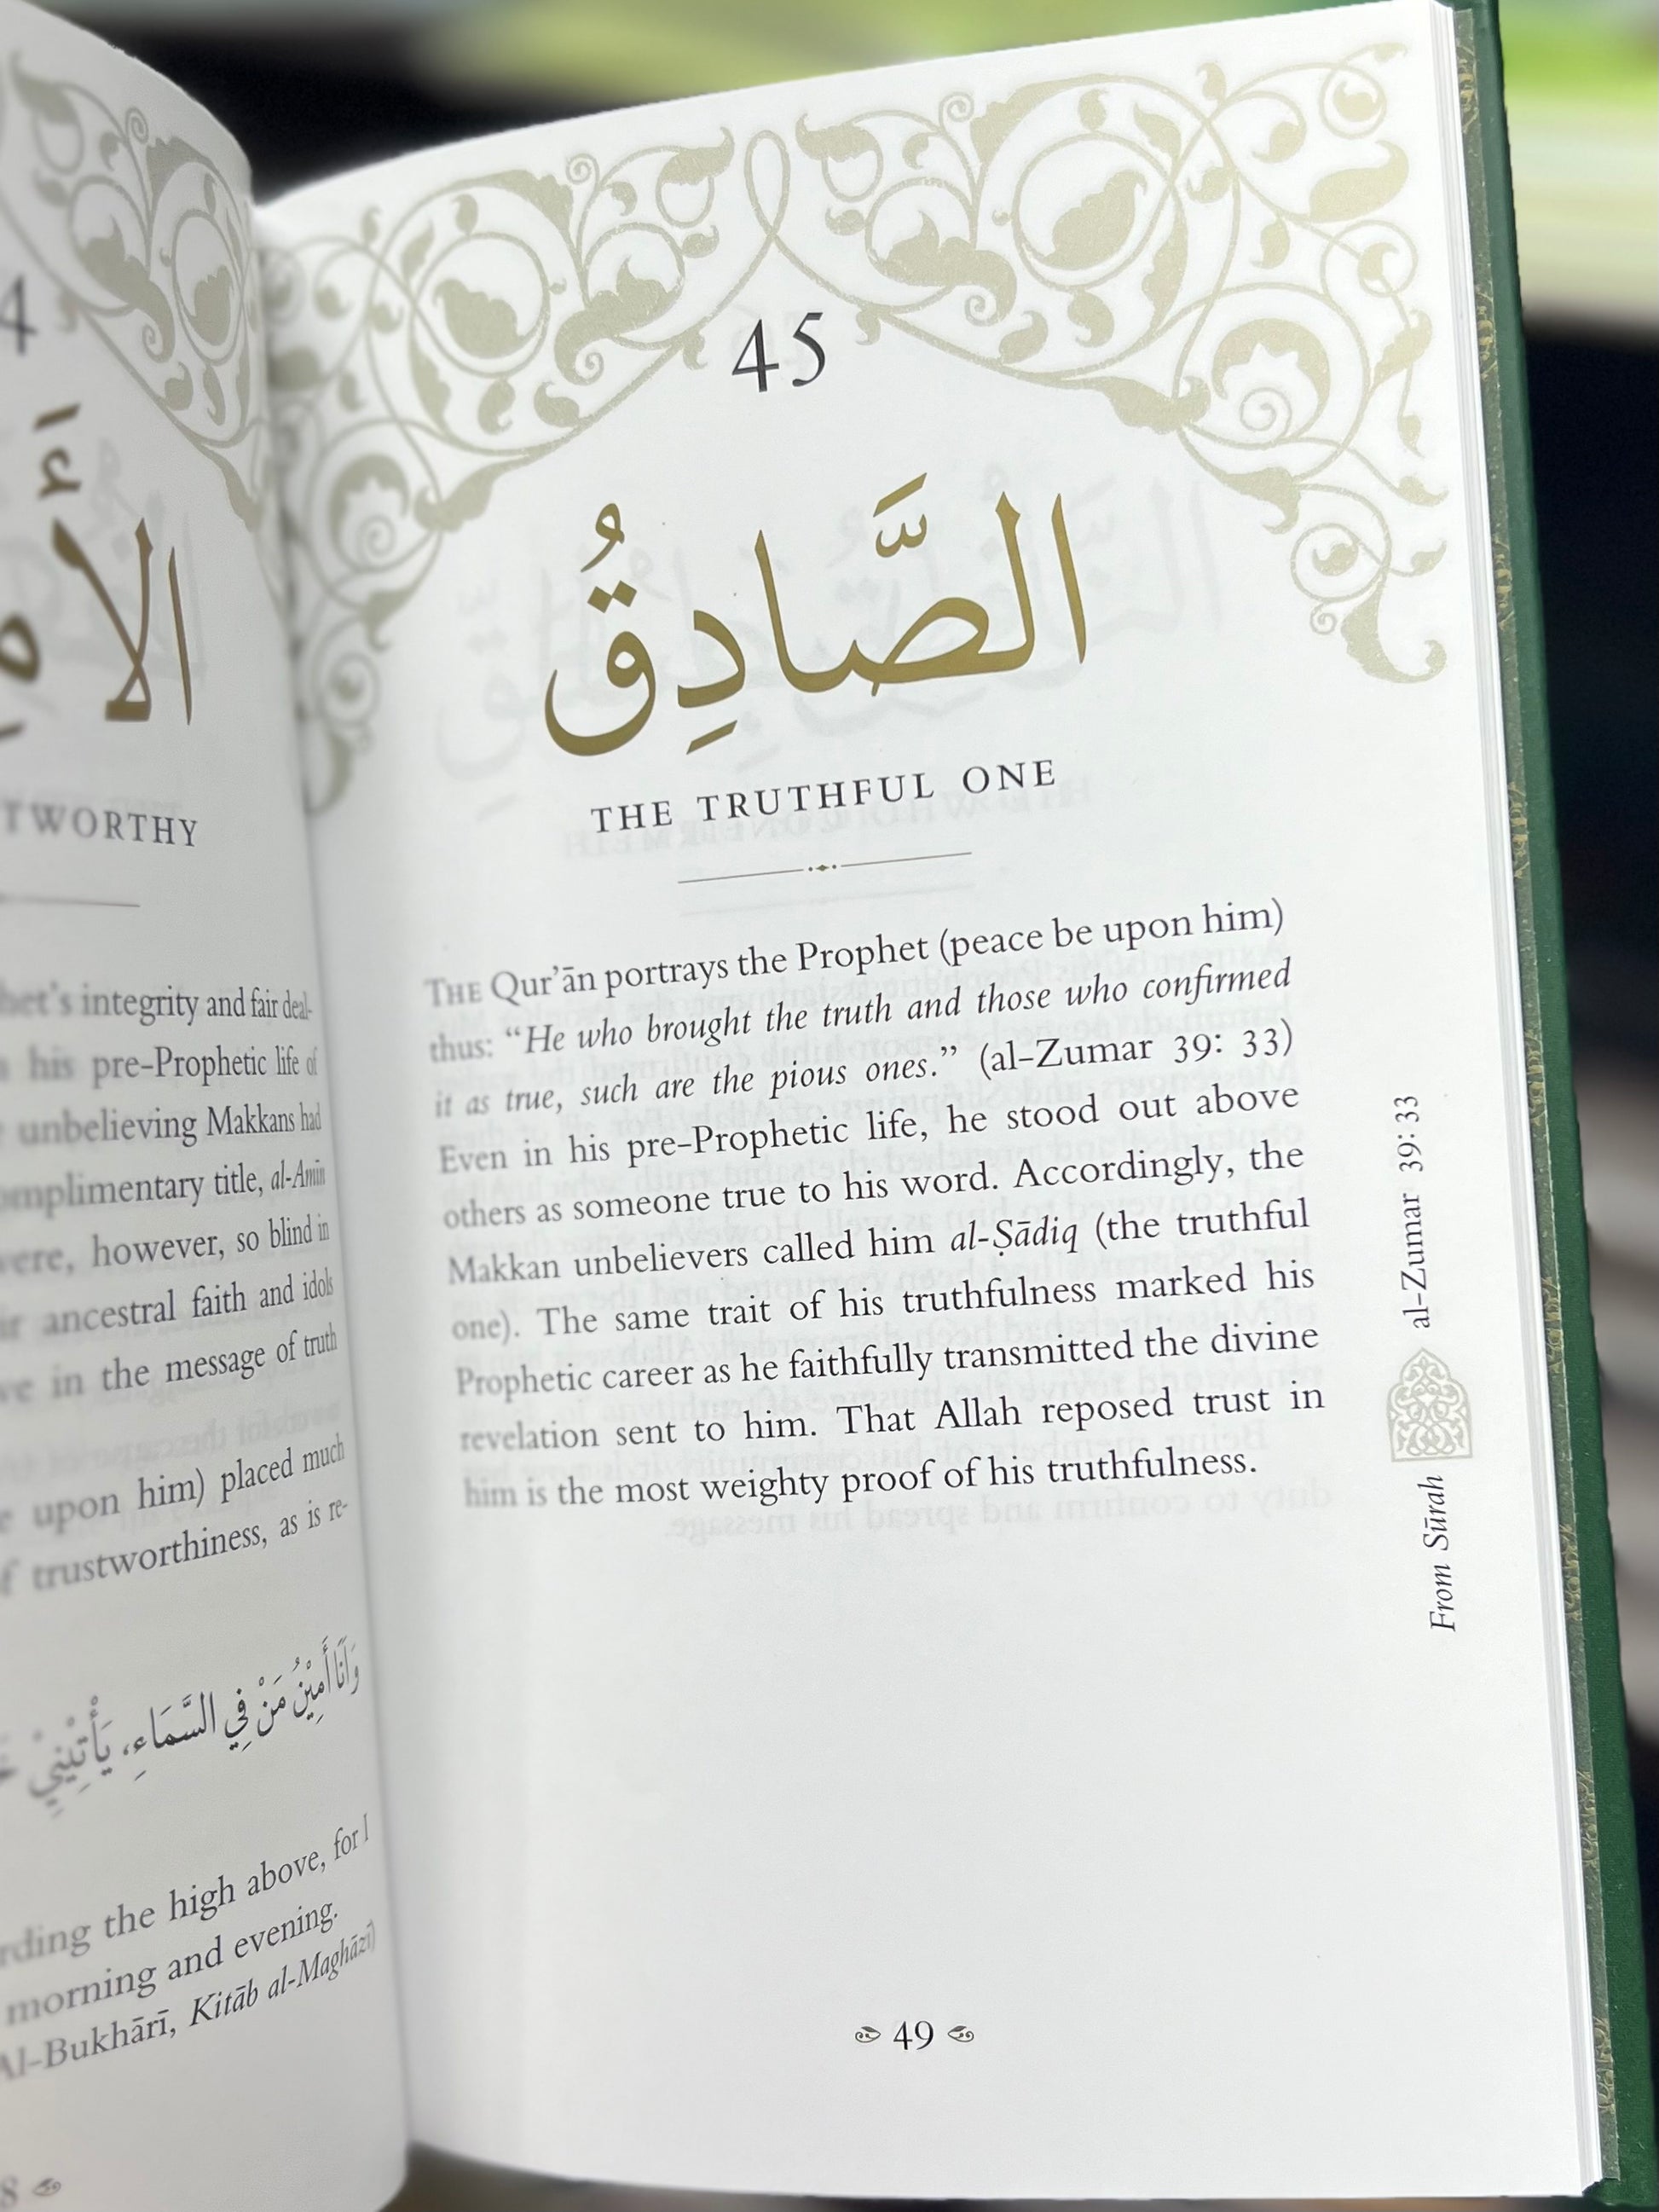 TWORTHY
integrity and fair deal-
his pre-Prophetic life of
unbelieving Makkans had
omplimentary title, al-Amīn
vere, however, so blind in
ir ancestral faith and idols
ve in the message of truth
upon him) placed much
f trustworthiness, as is re-
وَأَنَا أَمِيْنُ مَنْ فِي السَّمَاءِ، يَأْتِيْنِيْ
rding the high above, for I
morning and evening.
Al-Bukhārī, Kitāb al-Maghāzī)
8
45
الصَّادِقُ
THE TRUTHFUL ONE
THE Qur’ān portrays the Prophet (peace be upon him)
thus: “He who brought the truth and those who confirmed
it as true, such are the pious ones.” (al-Zumar 39: 33)
Even in his pre-Prophetic life, he stood out above
others as someone true to his word. Accordingly, the
Makkan unbelievers called him al-Ṣādiq (the truthful
one). The same trait of his truthfulness marked his
Prophetic career as he faithfully transmitted the divine
revelation sent to him. That Allah reposed trust in
him is the most weighty proof of his truthfulness.
From Sūrah al-Zumar 39: 33
49